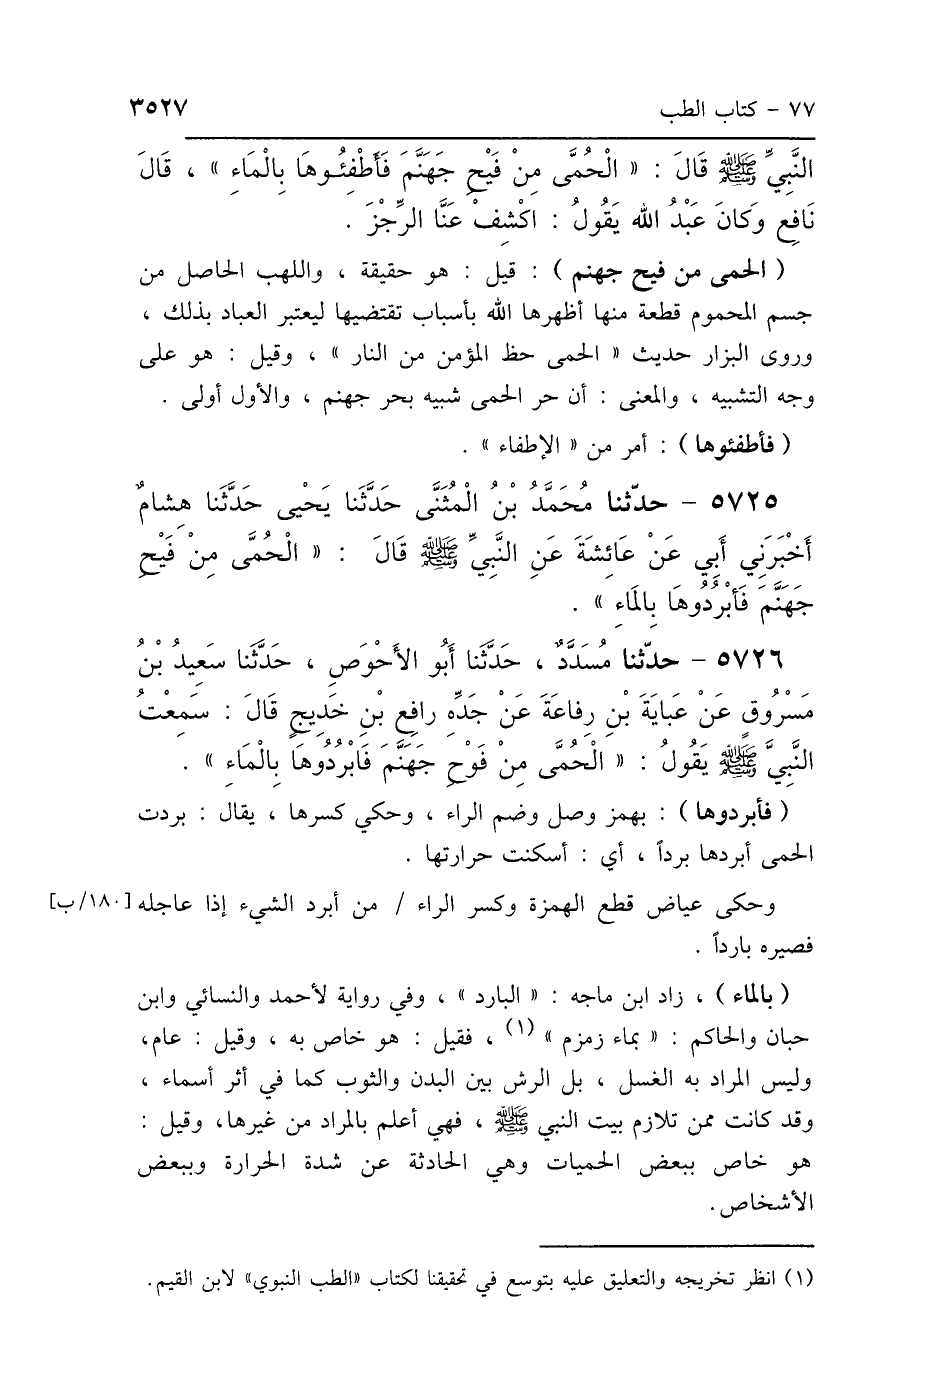 ٧٧ - كتاب الطب ٣٥٢٧
النَّبِيِّ ﷺ قَالَ : « الْحُمَّى مِنْ فَيْحِ جَهَنَّمَ فَأَطْفِئُوهَا بِالْمَاءِ » ، قَالَ
نَافِع وَكَانَ عَبْدُ الله يَقُولُ : اكْشِفْ عَنَّا الرِّجْزَ .
( الحمى من فيح جهنم ) : قيل : هو حقيقة ، واللهب الحاصل من
جسم المحموم قطعة منها أظهرها الله بأسباب تقتضيها ليعتبر العباد بذلك ،
وروى البزار حديث « الحمى حظ المؤمن من النار » ، وقيل : هو على
وجه التشبيه ، والمعنى : أن حر الحمى شبيه بحر جهنم ، والأول أولى .
( فأطفئوها ) : أمر من « الإطفاء » .
٥٧٢٥ - حدّثنا مُحَمَّدُ بْنُ الْمُثَنَّى حَدَّثَنَا يَحْيى حَدَّثَنا هِشامٌ
أَخْبَرَنِي أَبِي عَنْ عَائِشَةَ عَنِ النَّبِيِّ ﷺ قَالَ : « الْحُمَّى مِنْ فَيْحِ
جَهَنَّمَ فَأَبْرُدُوهَا بِالمَاءِ » .
٥٧٢٦ - حدّثنا مُسَدَّدٌ ، حَدَّثَنَا أَبُو الأَحْوَصِ ، حَدَّثَنَا سَعِيدُ بْنُ
مَسْرُوقٍ عَنْ عَبايَةَ بْنِ رِفاعَةَ عَنْ جَدِّهِ رافِعِ بْنِ خَدِيجٍ قَالَ : سَمِعْتُ
النَّبِيَّ ﷺ يَقُولُ : « الْحُمَّى مِنْ فَوْحِ جَهَنَّمَ فَابْرُدُوهَا بِالْمَاءِ » .
( فأبردوها ) : بهمز وصل وضم الراء ، وحكي كسرها ، يقال : بردت
الحمى أبردها برداً ، أي : أسكنت حرارتها .
وحكى عياض قطع الهمزة وكسر الراء / من أبرد الشيء إذا عاجله [١٨٠/ب]
فصيره بارداً .
( بالماء ) ، زاد ابن ماجه : « البارد » ، وفي رواية لأحمد والنسائي وابن
حبان والحاكم : « بماء زمزم » (١) ، فقيل : هو خاص به ، وقيل : عام،
وليس المراد به الغسل ، بل الرش بين البدن والثوب كما في أثر أسماء ،
وقد كانت ممن تلازم بيت النبي ﷺ ، فهي أعلم بالمراد من غيرها، وقيل :
هو خاص ببعض الحميات وهي الحادثة عن شدة الحرارة وببعض
الأشخاص.
(١) انظر تخريجه والتعليق عليه بتوسع في تحقيقنا لكتاب «الطب النبوي» لابن القيم.